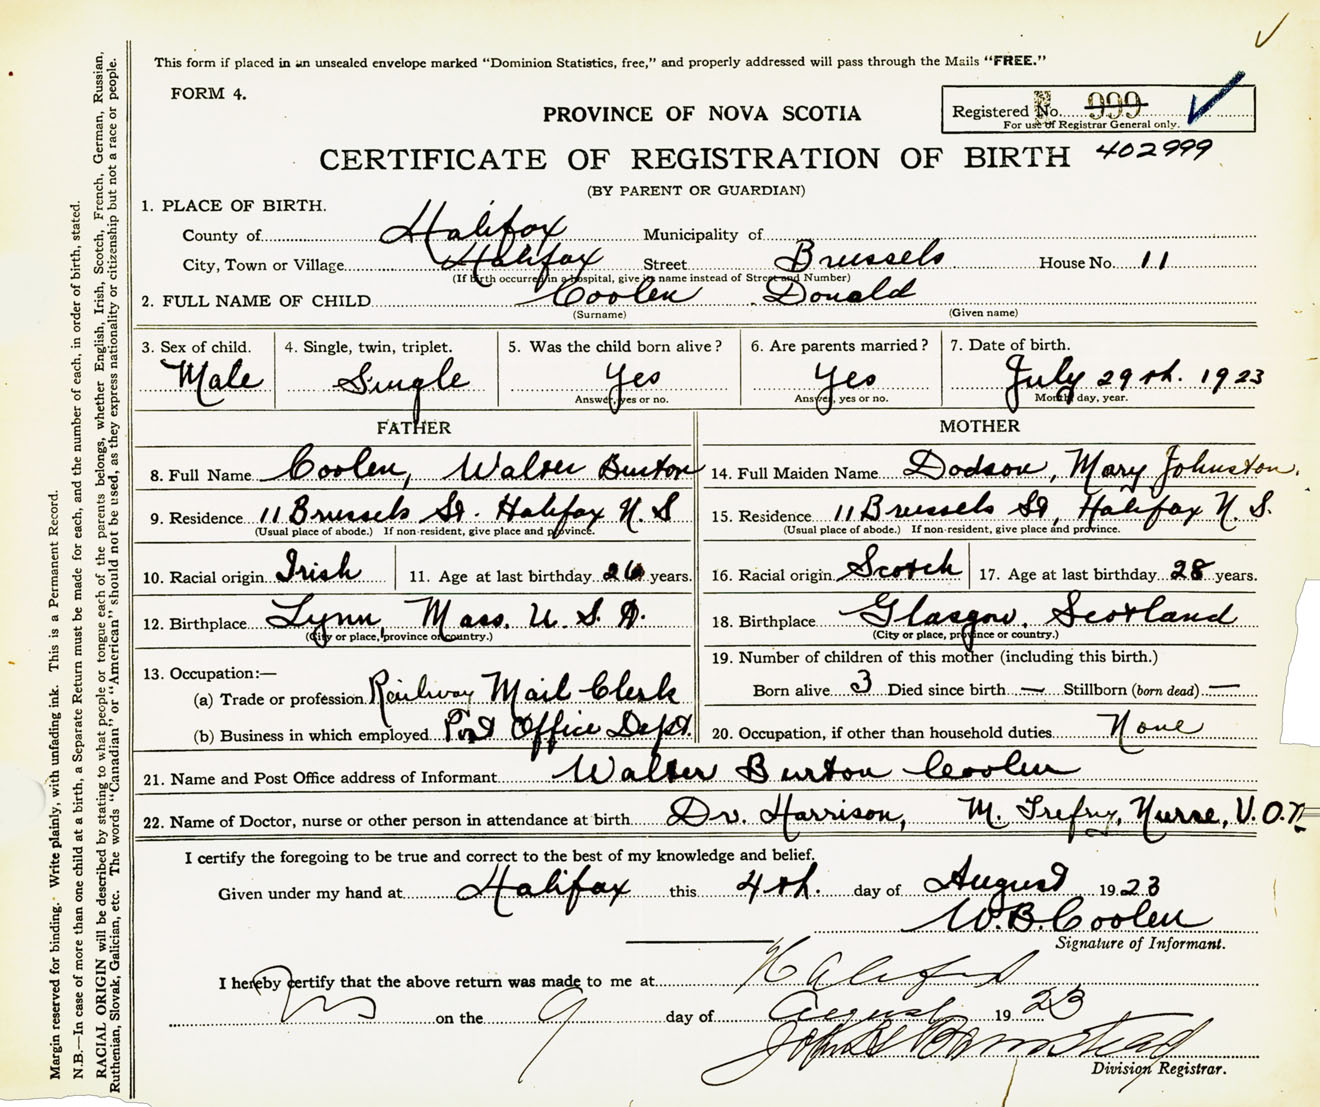 This form if placed in an unsealed envelope marked "Dominion Statistics, free," and properly addressed will pass through the Mails "FREE."
FORM 4.
PROVINCE OF NOVA SCOTIA
Registered No. 999
For use of Registrar General only.
CERTIFICATE OF REGISTRATION OF BIRTH 402999
(BY PARENT OR GUARDIAN)
1. PLACE OF BIRTH.
County of Halifax Municipality of
City, Town or Village Halifax Street Brussels House No. 11
(If birth occurred in a hospital, give its name instead of Street and Number)
2. FULL NAME OF CHILD Coolen Donald
(Surname) (Given name)
3. Sex of child. 4. Single, twin, triplet. 5. Was the child born alive? 6. Are parents married? 7. Date of birth.
Male Single Yes Yes July 29th. 1923
Answer, yes or no. Answer, yes or no. Month, day, year.
FATHER MOTHER
8. Full Name Coolen, Walter Burton 14. Full Maiden Name Dodson, Mary Johnston.
9. Residence 11 Brussels St. Halifax N. S 15. Residence 11 Brussels St, Halifax N. S.
(Usual place of abode.) If non-resident, give place and province. (Usual place of abode.) If non-resident, give place and province.
10. Racial origin Irish 11. Age at last birthday 26 years. 16. Racial origin Scotch 17. Age at last birthday 28 years.
12. Birthplace Lynn, Mass. U. S. A. 18. Birthplace Glasgow, Scotland
(City or place, province or country.) (City or place, province or country.)
13. Occupation:— 19. Number of children of this mother (including this birth.)
(a) Trade or profession Railway Mail Clerk Born alive 3 Died since birth — Stillborn (born dead) —
(b) Business in which employed Post Office Dept. 20. Occupation, if other than household duties None
21. Name and Post Office address of Informant Walter Burton Coolen
22. Name of Doctor, nurse or other person in attendance at birth Dr. Harrison, M. Trefry, Nurse, V. O. N.
I certify the foregoing to be true and correct to the best of my knowledge and belief.
Given under my hand at Halifax this 4th. day of August 1923
W. B. Coolen
Signature of Informant.
I hereby certify that the above return was made to me at Halifax
on the 9 day of August 1923
John
Division Registrar.
Margin reserved for binding. Write plainly, with unfading ink. This is a Permanent Record.
N.B.—In case of more than one child at a birth, a Separate Return must be made for each, and the number of each, in order of birth, stated.
RACIAL ORIGIN will be described by stating to what people or tongue each of the parents belongs, whether English, Irish, Scotch, French, German, Russian,
Ruthenian, Slovak, Galician, etc. The words "Canadian" or "American" should not be used, as they express nationality or citizenship but not a race or people.